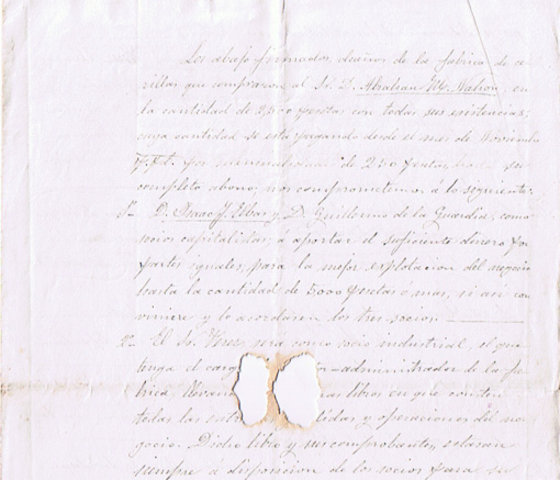 Los abajo firmados, dueños de la fábrica de ce-
rillas que compraron al Sr. D. Abraham M. Nahon, en
la cantidad de 2,500 pesetas con todas sus existencias;
cuya cantidad se está pagando desde el mes de Noviembre
p.pd. por mensualidades de 250 pesetas, hasta su
completo abono; nos comprometemos á lo siguiente:
1º D. Isaac J. y D. Guillermo de la Guardia, como
socios capitalistas, á aportar el suficiente dinero por
partes iguales, para la mejor explotacion del negocio
hasta la cantidad de 5000 pesetas ó mas, si asi con
viniere y lo acordaren los tres socios.
2º El Sr. será como socio industrial, el que
tenga el administrador de la fá-
brica, libros en que consten
todas las y operaciones del ne-
gocio. Dicho libro y sus comprobantes, estarán
siempre á disposicion de los socios para su